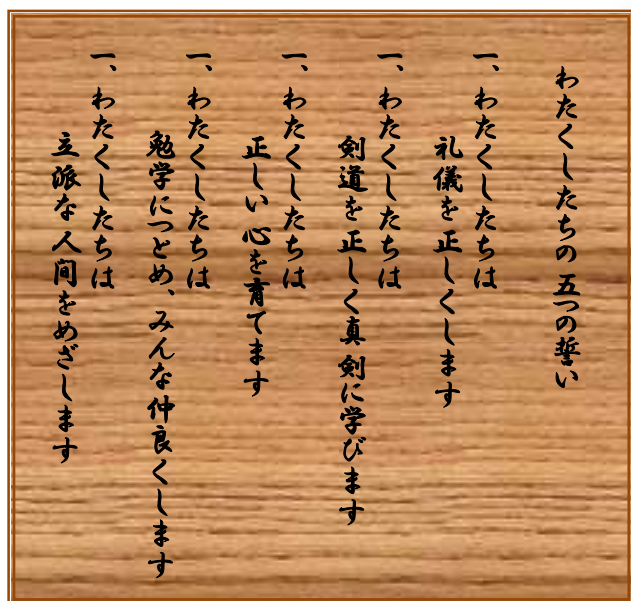 わたくしたちの五つの誓い
一、わたくしたちは
礼儀を正しくします
一、わたくしたちは
剣道を正しく真剣に学びます
一、わたくしたちは
正しい心を育てます
一、わたくしたちは
勉学につとめ、みんな仲良くします
一、わたくしたちは
立派な人間をめざします